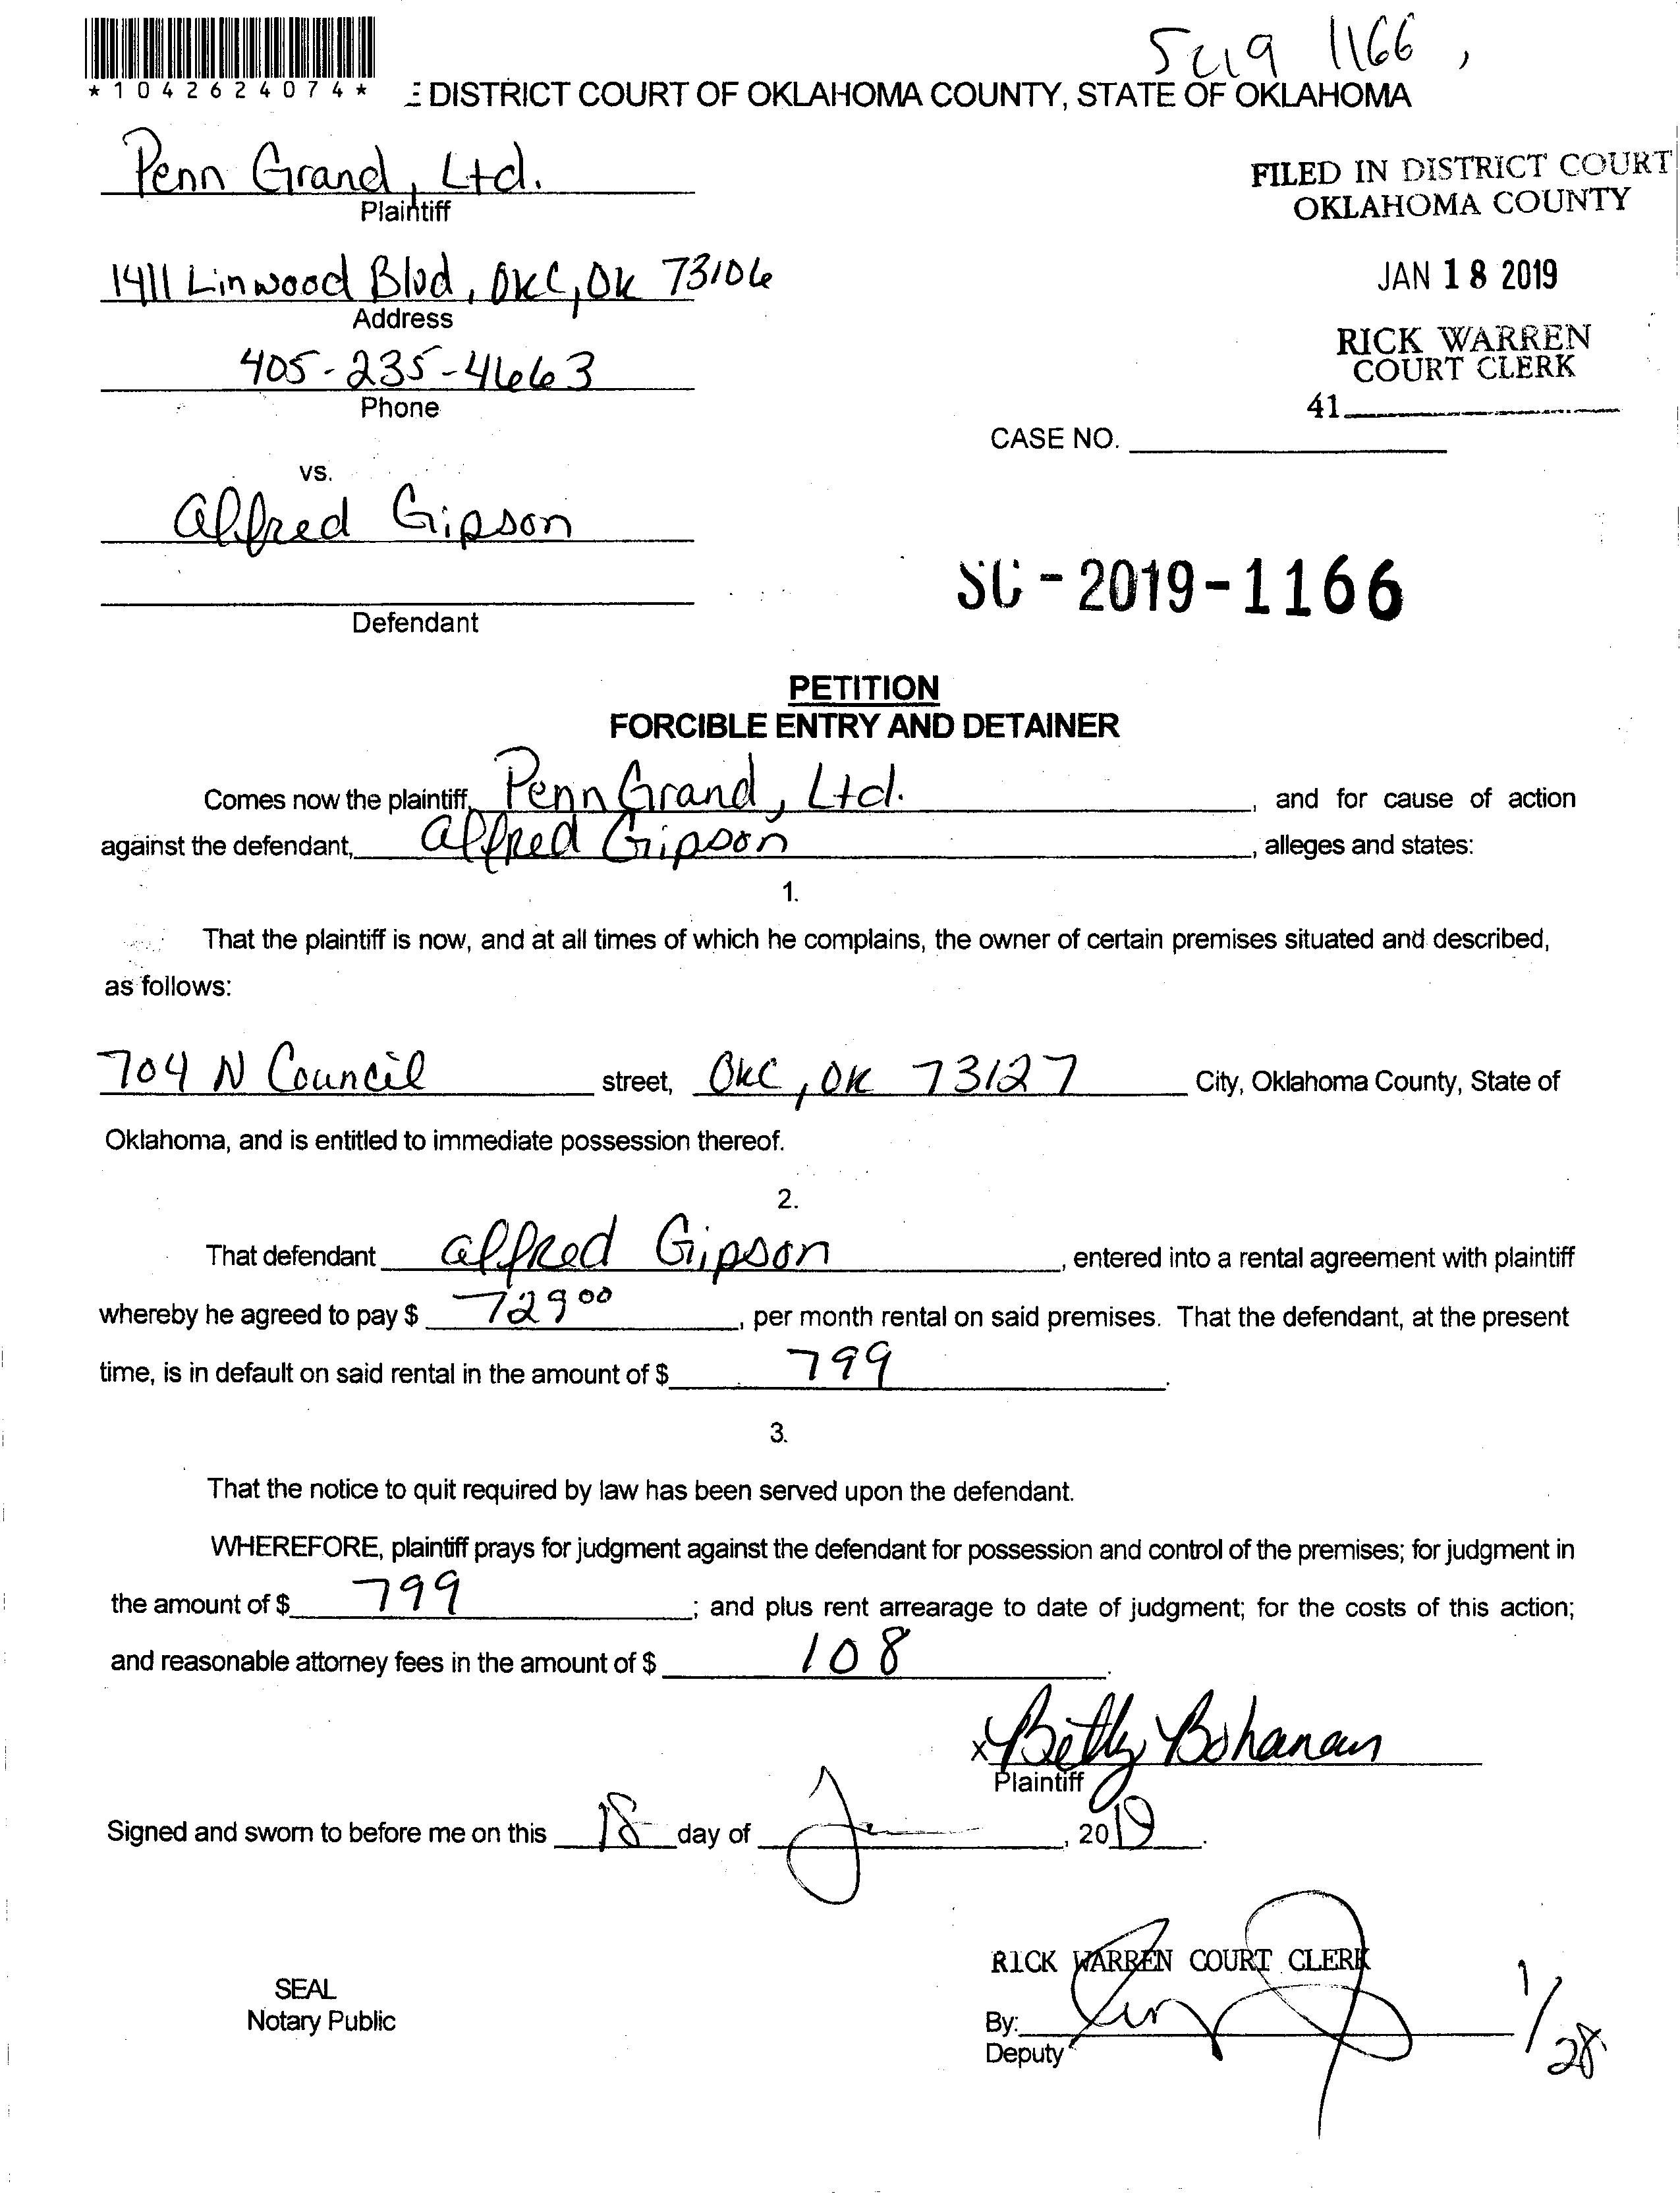 SC19 1166,
*1042624074*
E DISTRICT COURT OF OKLAHOMA COUNTY, STATE OF OKLAHOMA
Penn Grand, Ltd.
Plaintiff
FILED IN DISTRICT COURT
OKLAHOMA COUNTY
1411 Linwood Blvd, OKC, OK 73106
Address
JAN 18 2019
405-235-4663
Phone
RICK WARREN
COURT CLERK
41
CASE NO.
vs.
Alfred Gipson
Defendant
SC-2019-1166
PETITION
FORCIBLE ENTRY AND DETAINER
Comes now the plaintiff, Penn Grand, Ltd. , and for cause of action
against the defendant, Alfred Gipson , alleges and states:
1.
That the plaintiff is now, and at all times of which he complains, the owner of certain premises situated and described,
as follows:
704 N Council street, OKC, OK 73127 City, Oklahoma County, State of
Oklahoma, and is entitled to immediate possession thereof.
2.
That defendant Alfred Gipson , entered into a rental agreement with plaintiff
whereby he agreed to pay $ 729 00 , per month rental on said premises. That the defendant, at the present
time, is in default on said rental in the amount of $ 799 .
3.
That the notice to quit required by law has been served upon the defendant.
WHEREFORE, plaintiff prays for judgment against the defendant for possession and control of the premises; for judgment in
the amount of $ 799 ; and plus rent arrearage to date of judgment; for the costs of this action;
and reasonable attorney fees in the amount of $ 108 .
x Betty Bohanan
Plaintiff
Signed and sworn to before me on this 18 day of Jan , 2019 .
RICK WARREN COURT CLERK
SEAL
Notary Public
By:
Deputy
1/28